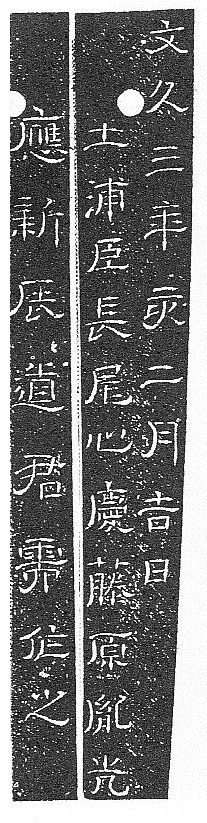 文久三年亥二月吉日
土浦臣長尾心慶藤原胤光
應新道君需作之